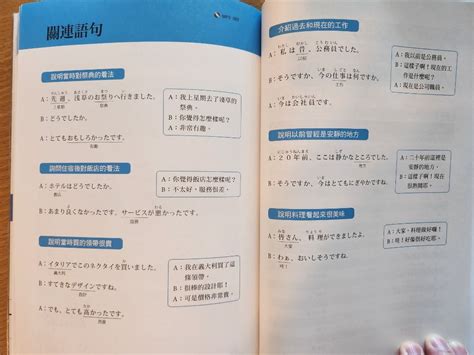 關連語句
說明當時對祭典的看法
A：先週、浅草のお祭りへ行きました。
B：どうでしたか。
A：とてもおもしろかったです。
A：我上星期去了淺草的
祭典。
B：你覺得怎麼樣呢？
A：非常有趣。
詢問住宿後對飯店的看法
A：ホテルはどうでしたか。
B：あまり良くなかったです。サービスが悪かったです。
A：你覺得飯店怎樣呢？
B：不太好，服務很差。
說明當時買的領帶很貴
A：イタリアでこのネクタイを買いました。
義大利
B：すてきなデザインですね。
設計
A：でも、とても高かったです。
A：我在義大利買了這
條領帶。
B：很棒的設計耶！
A：可是價格非常貴。
介紹過去和現在的工作
A：私は昔、公務員でした。
B：そうですか。今の仕事は何ですか。
A：今は会社員です。
A：我以前是公務員。
B：這樣子啊！現在的工
作是什麼呢？
A：現在是公司職員。
說明以前曾經是安靜的地方
A：２０年前、ここは静かなところでした。
B：そうですか、今はとてもにぎやかですね。
A：二十年前這裡是安靜的
地方。
說明料理看起來很美味
A：皆さん、料理ができましたよ。
大家
B：わぁ、おいしそうですね。
A：大家，料理做好囉！
B：哇！好像很好吃耶。